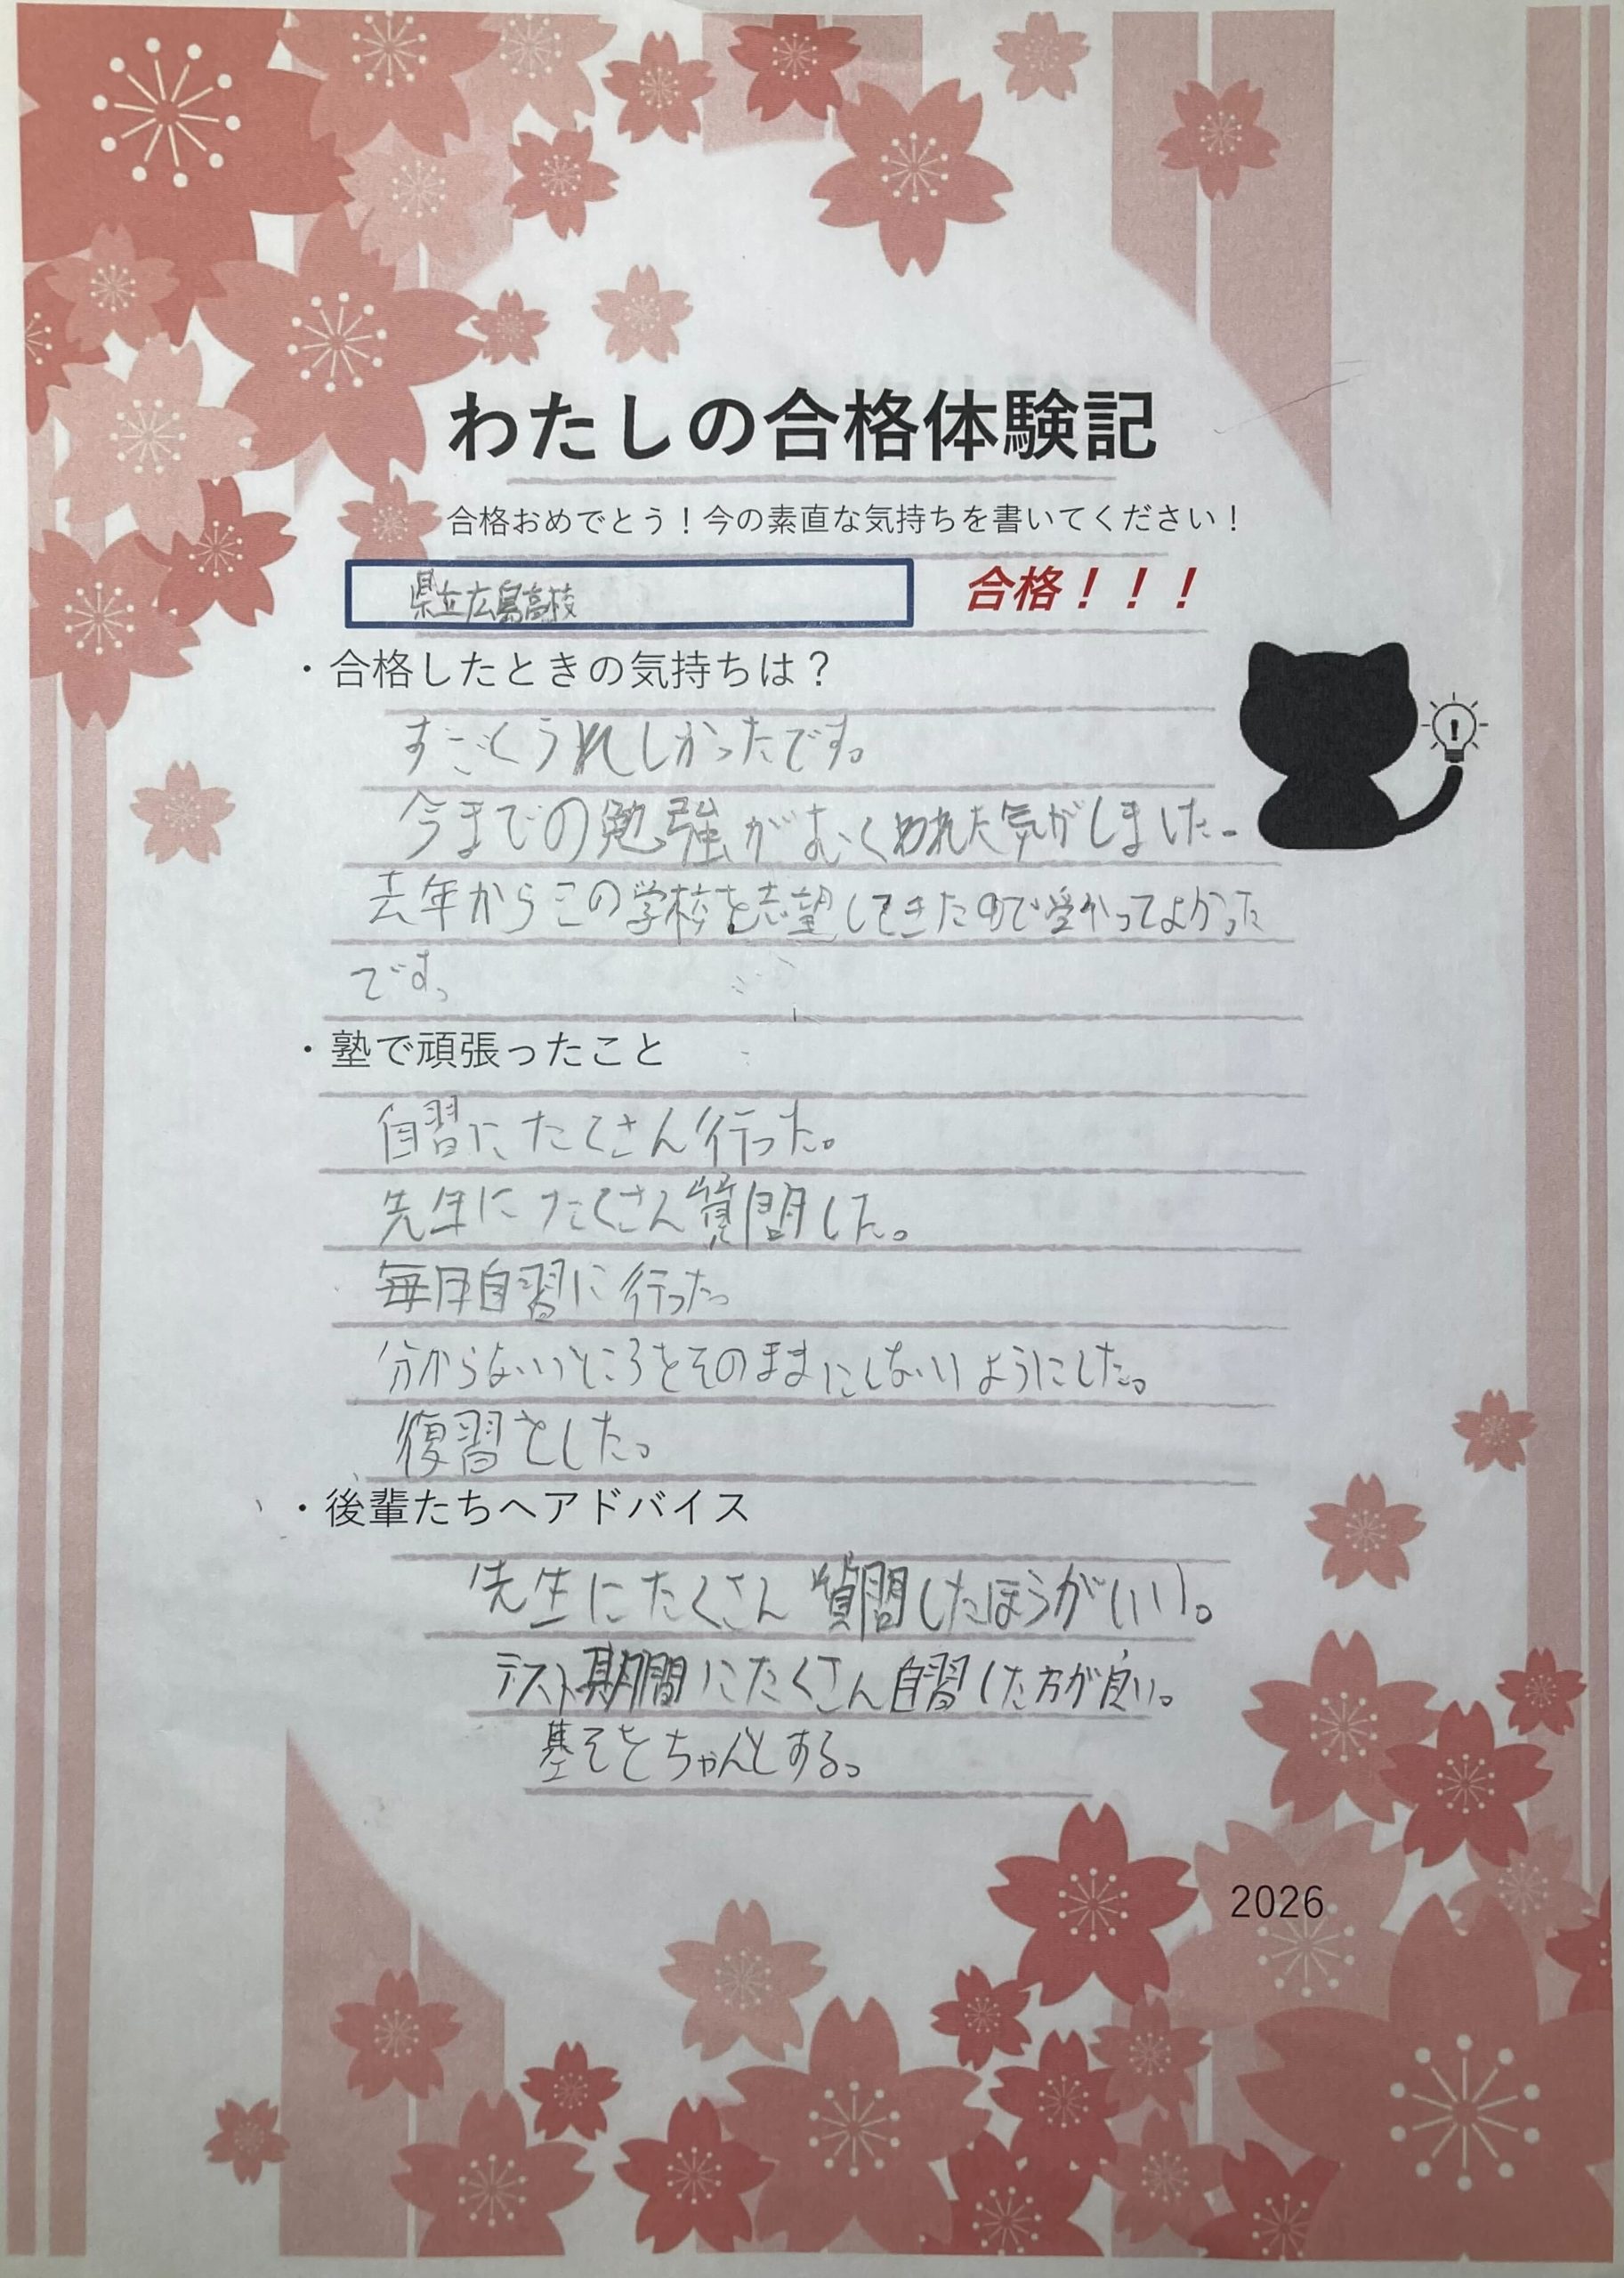 わたしの合格体験記
合格おめでとう！今の素直な気持ちを書いてください！
県立広島高校 合格！！！
・合格したときの気持ちは？
すごくうれしかったです。
今までの勉強がむくわれた気がしました。
去年からこの学校を志望してきたので受かってよかった
です。
・塾で頑張ったこと
自習にたくさん行った。
先生にたくさん質問した。
毎日自習に行った。
分からないところをそのままにしないようにした。
復習をした。
・後輩たちへアドバイス
先生にたくさん質問したほうがいい。
テスト期間にたくさん自習した方が良い。
基そをちゃんとする。
2026